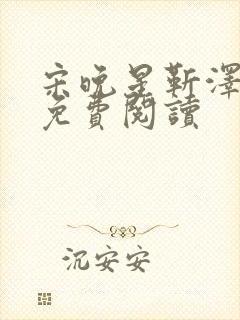 宋晚星靳澤
免費閱讀
沉安安